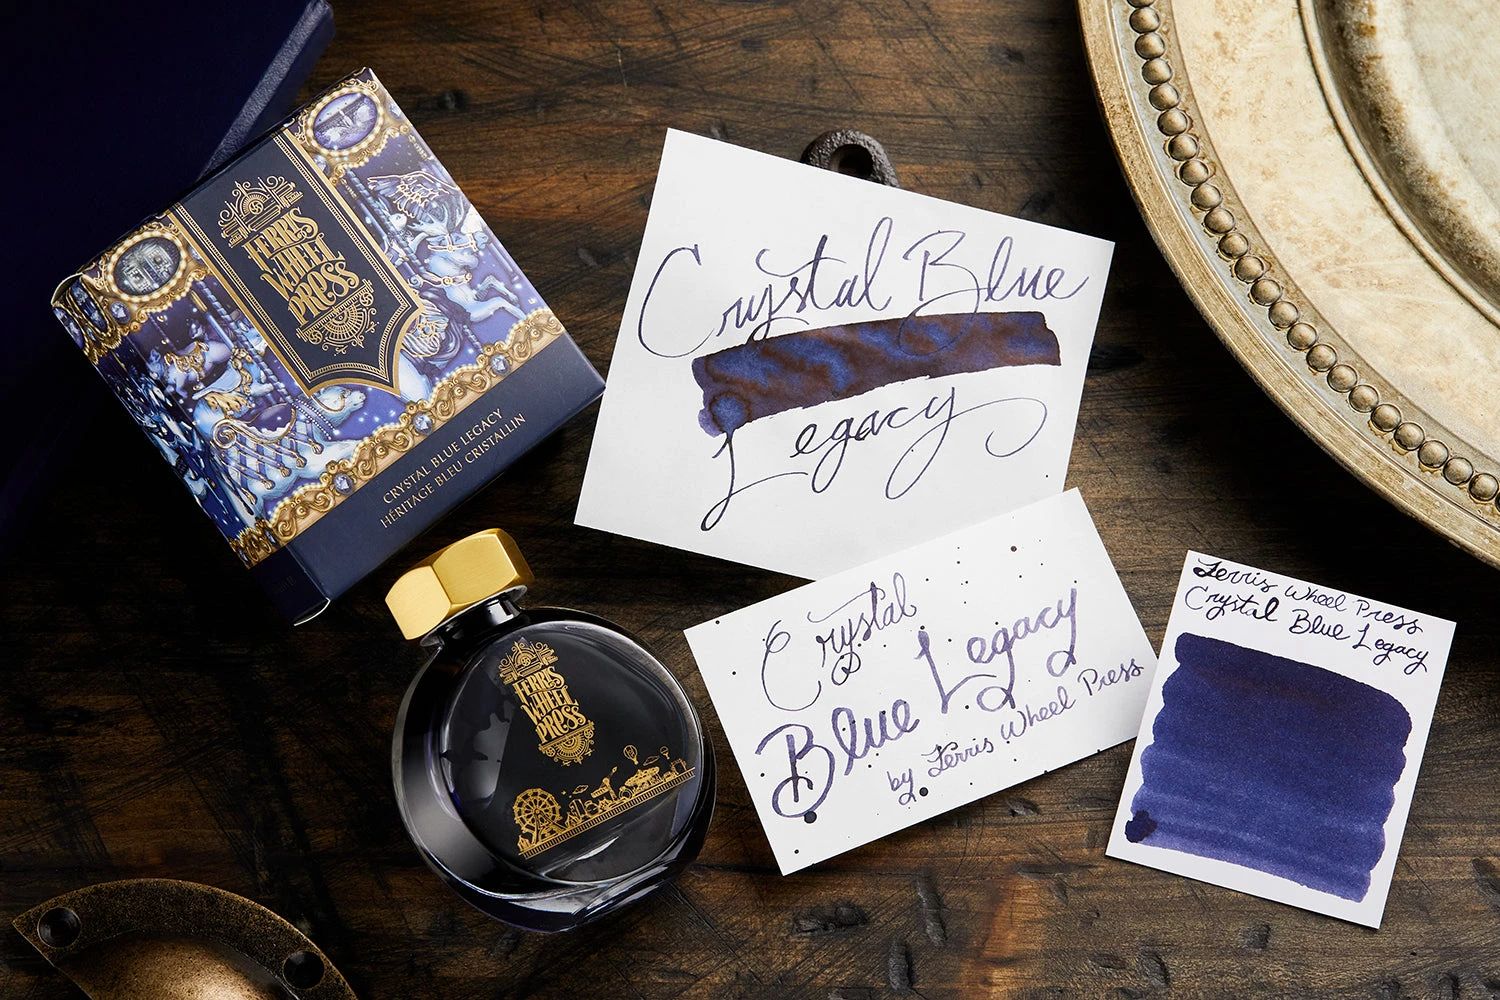 FERRIS
WHEEL
PRESS
CRYSTAL BLUE LEGACY
HÉRITAGE BLEU CRISTALLIN
Crystal Blue
Legacy
FERRIS
WHEEL
PRESS
Crystal
Blue Legacy
by Ferris Wheel Press
Ferris Wheel Press
Crystal Blue Legacy